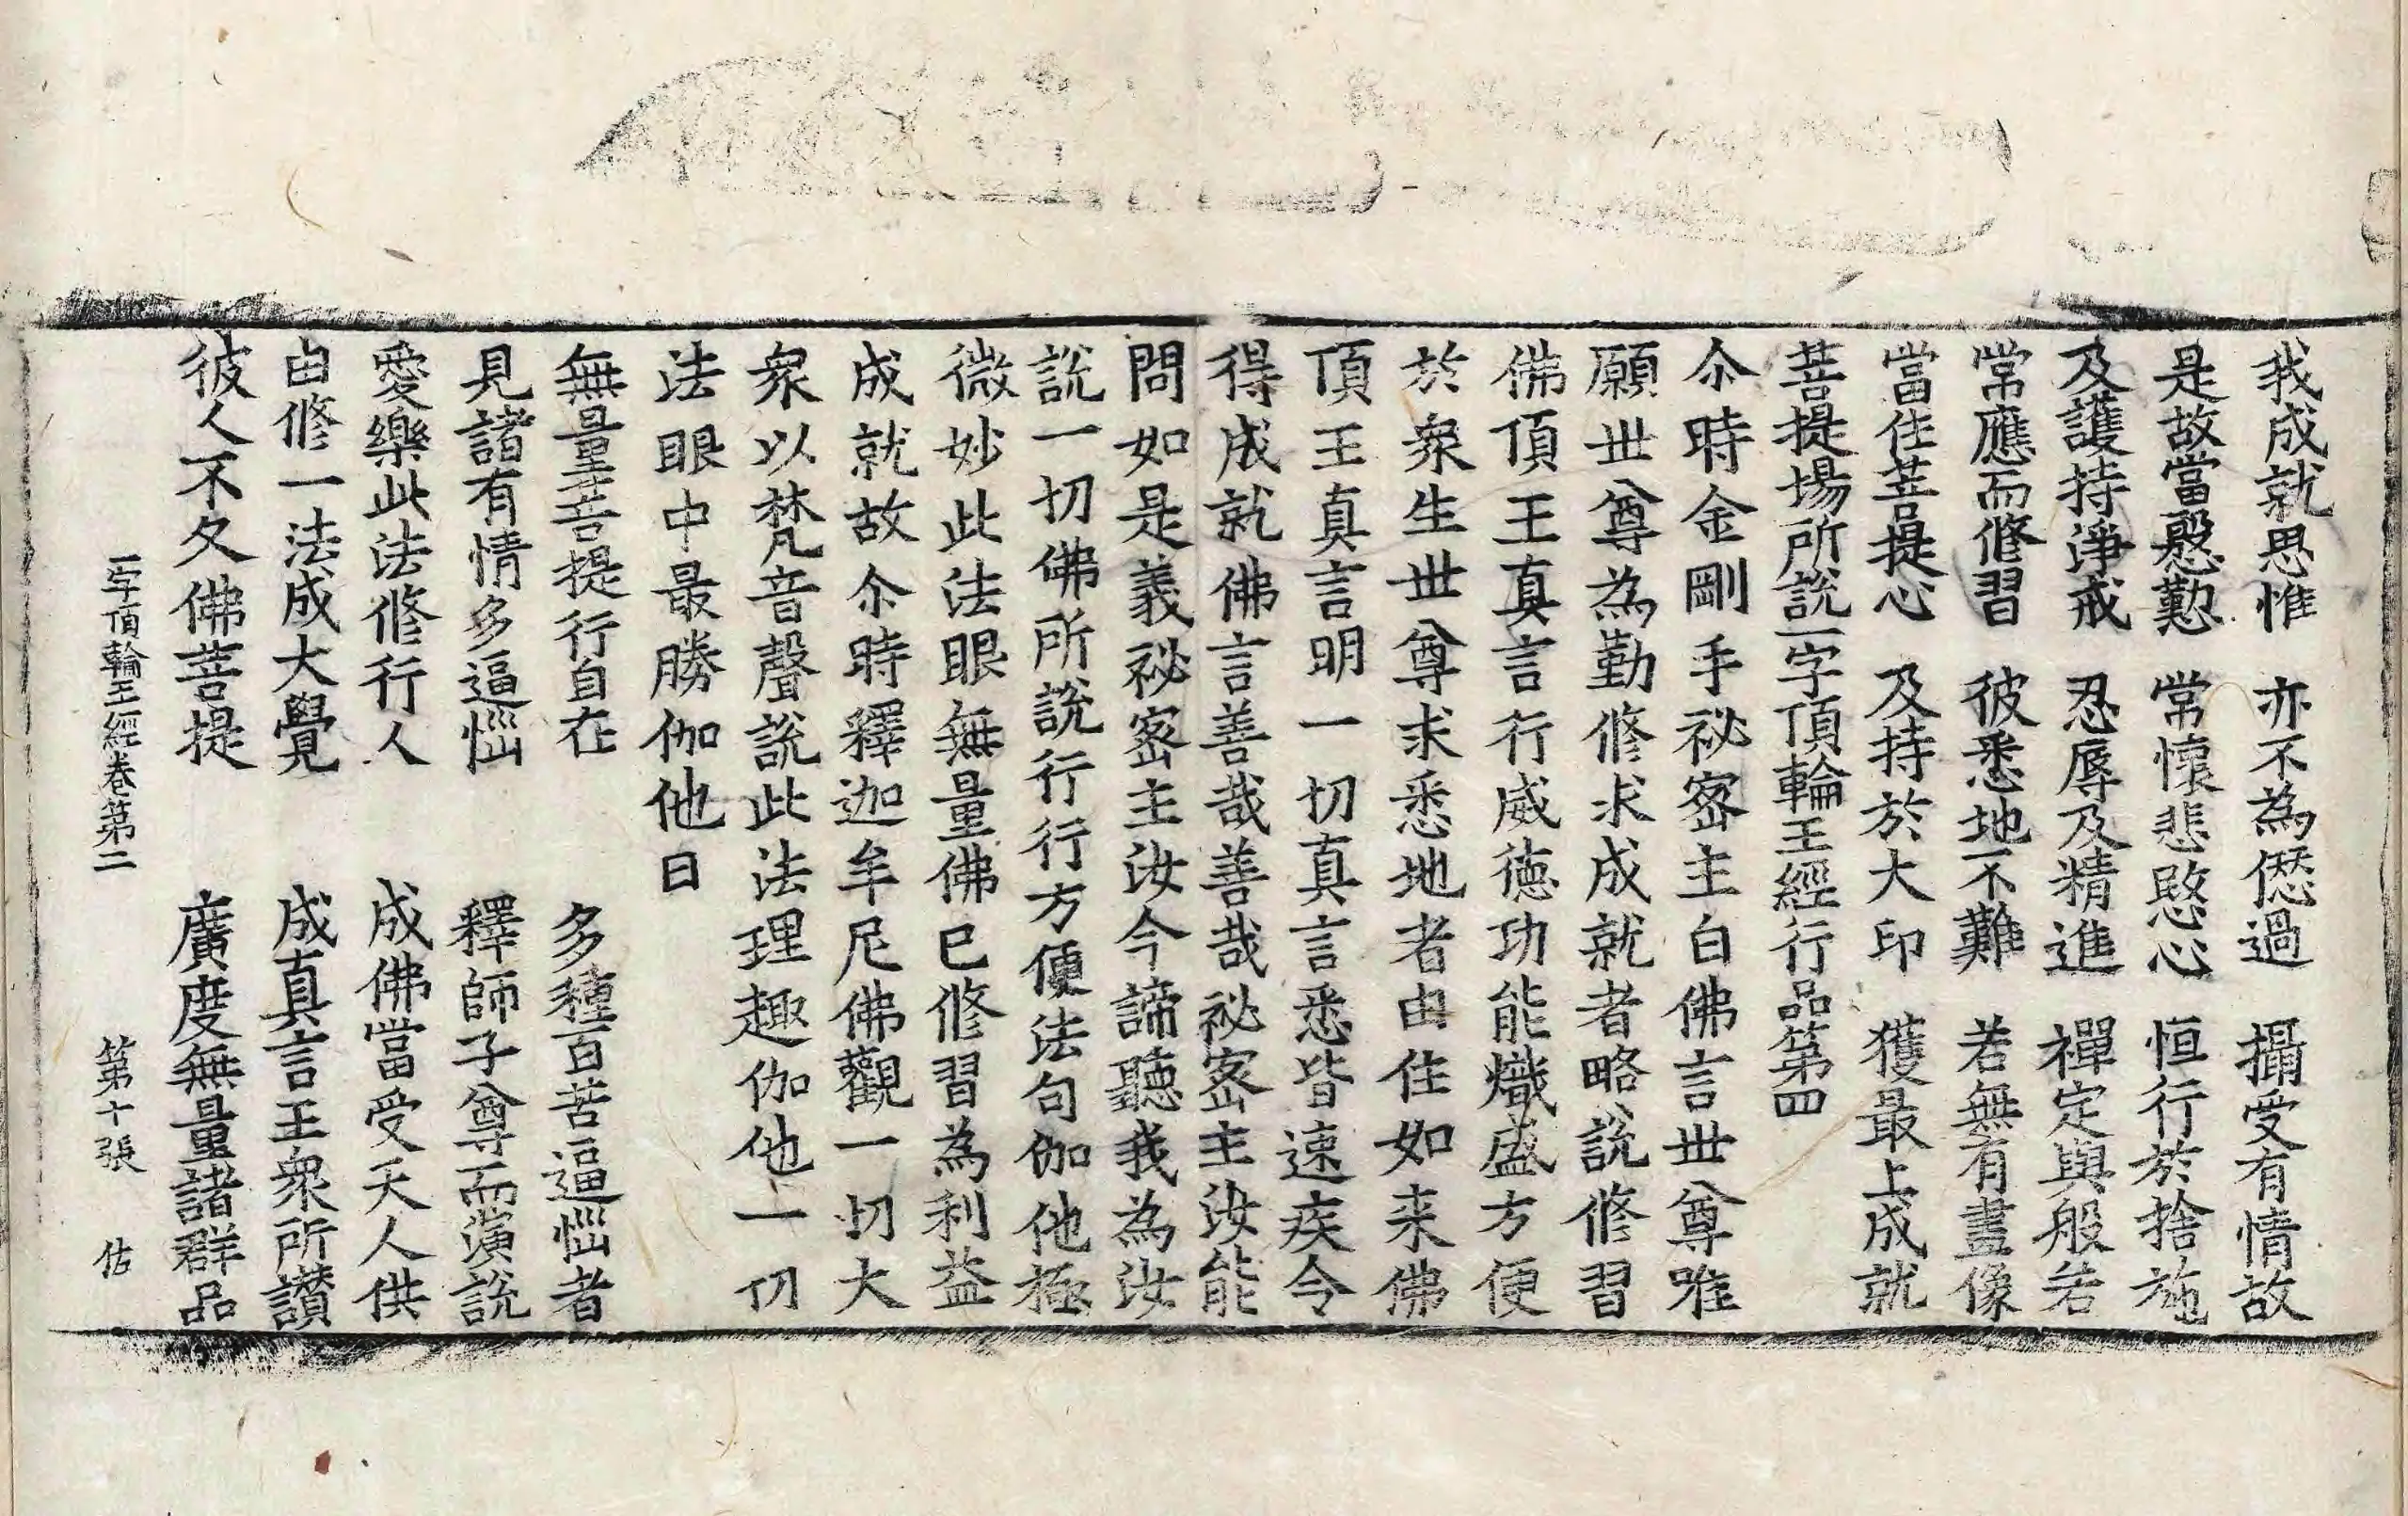 我成就思惟　亦不為愆過　攝受有情故
是故當慇懃　常懷悲愍心　恒行於捨施
及護持淨戒　忍辱及精進　禪定與般若
常應而修習　彼悉地不難　若無有畫像
當住菩提心　及持於大印　獲最上成就
菩提場所說一字頂輪王經行品第四
尒時金剛手祕密主白佛言世尊唯
願世尊為勤修求成就者略說修習
佛頂王真言行威德功能熾盛方便
於衆生世尊求悉地者由住如来佛
頂王真言明一切真言悉皆速疾令
得成就佛言善哉善哉祕密主汝能
問如是義祕密主汝今諦聽我為汝
說一切佛所說行行方便法句伽他極
微妙此法眼無量佛已修習為利益
成就故尒時釋迦牟尼佛觀一切大
衆以梵音聲說此法理趣伽他一切
法眼中最勝伽他曰
無量菩提行自在　多種百苦逼惱者
見諸有情多逼惱　釋師子尊而演說
愛樂此法修行人　成佛當受天人供
由修一法成大覺　成真言王衆所讃
彼人不久佛菩提　廣度無量諸群品
一字頂輪王經卷第二　第十張　佑